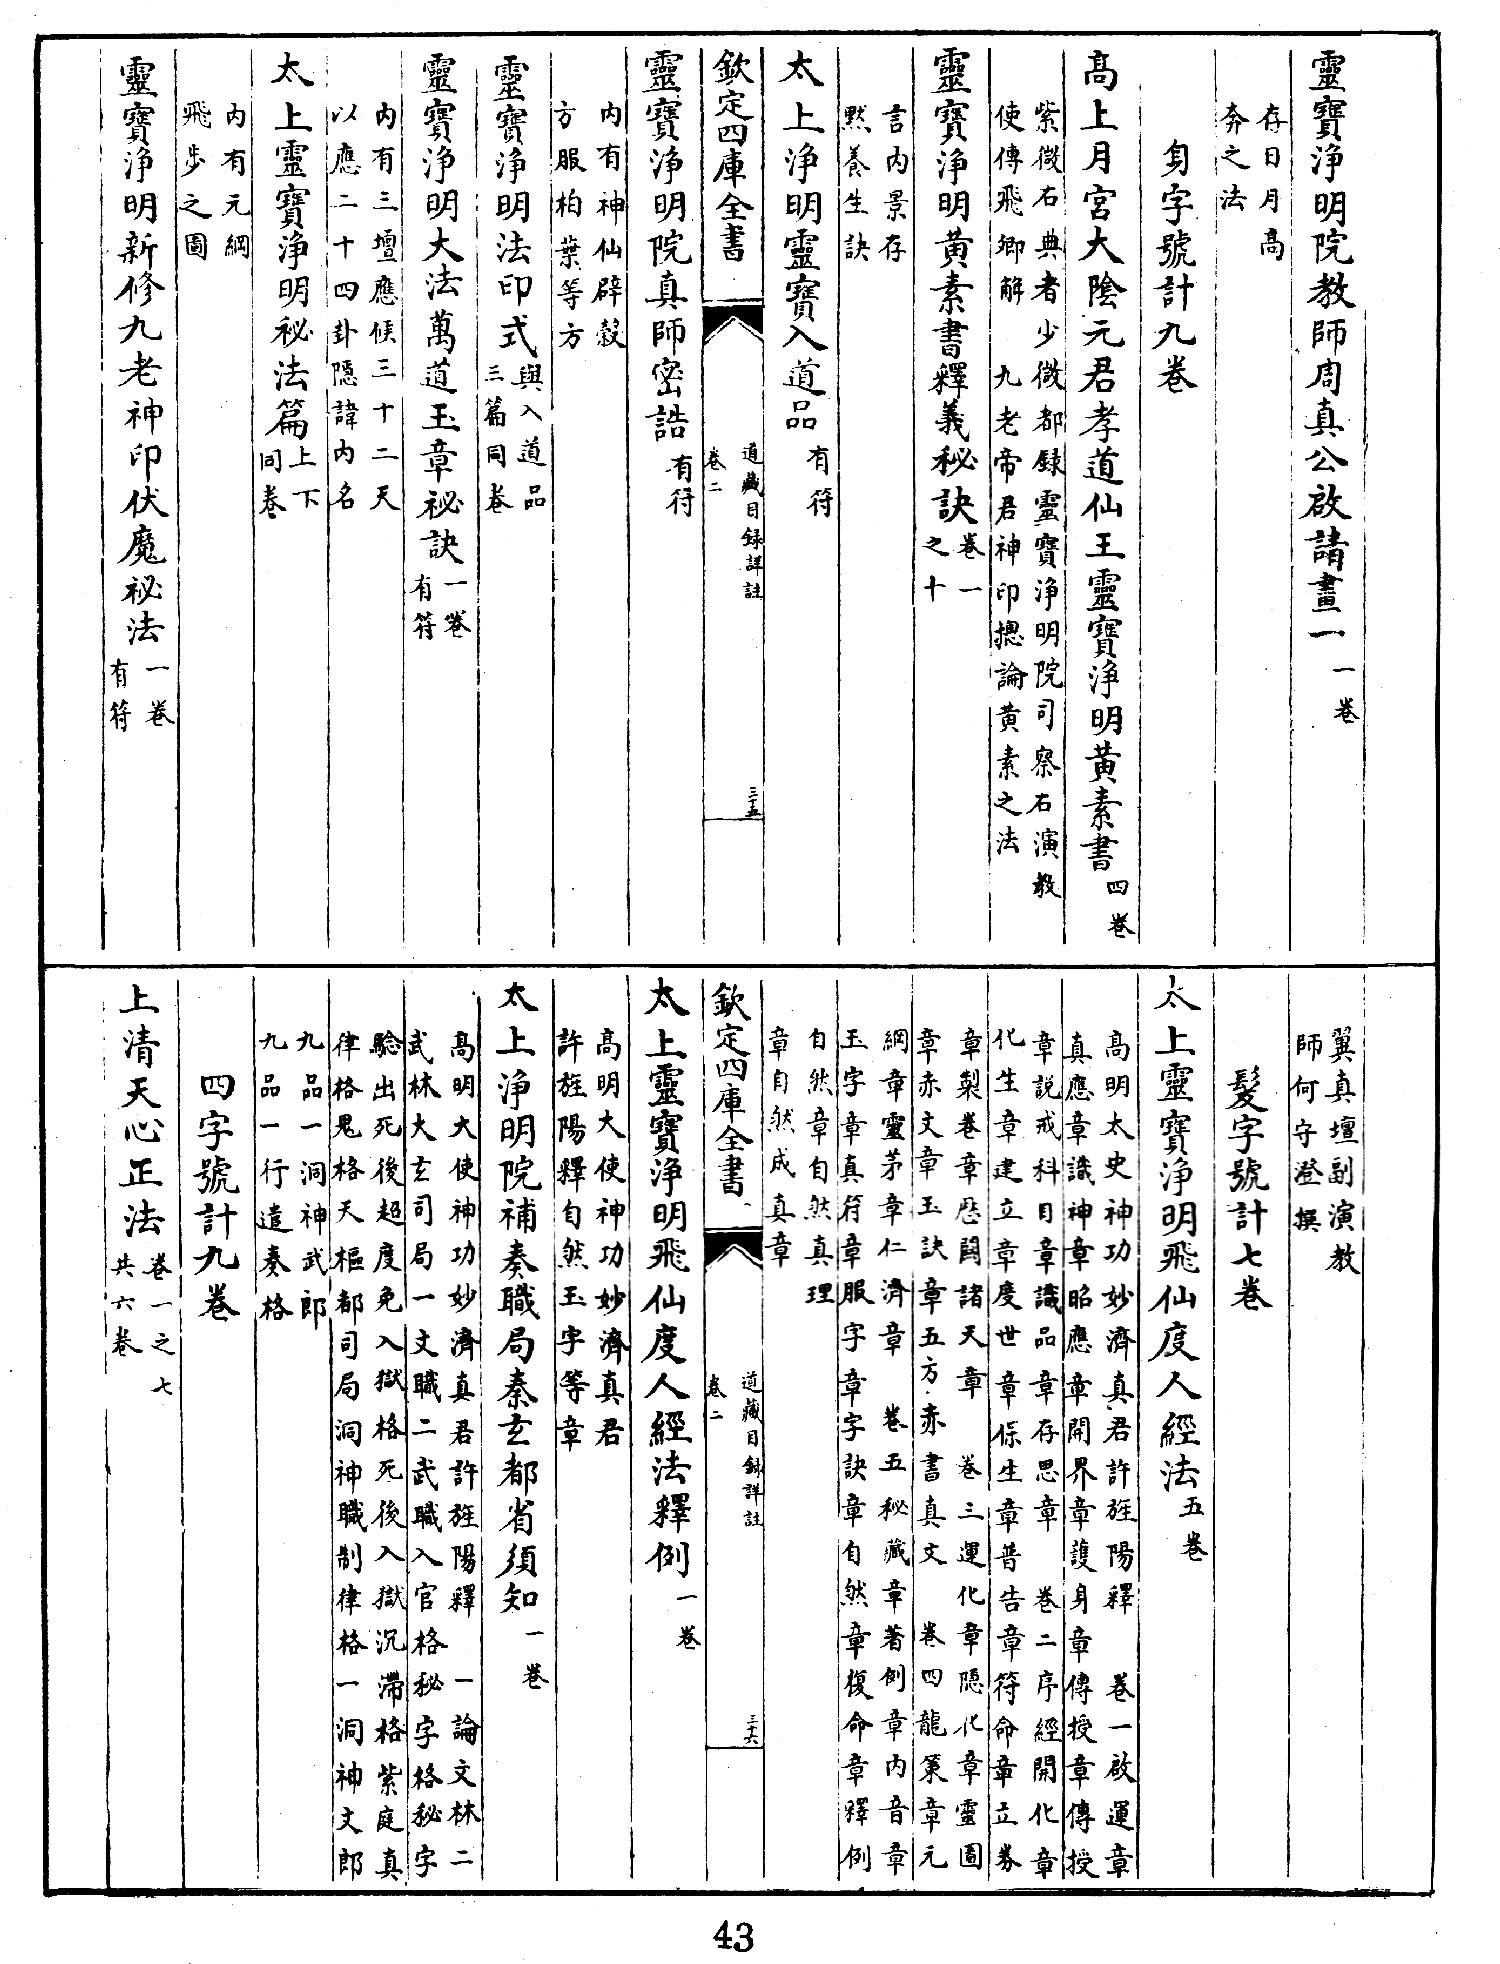 靈寶淨明院教師周真公啟請畫一一卷
存日月高
奔之法
身字號計九卷
高上月宮大陰元君孝道仙王靈寶淨明黃素書四卷
紫微右典者少微都録靈寶淨明院司察右演教
使傅飛卿解　九老帝君神印揔論黃素之法
靈寶淨明黃素書釋義秘訣卷一
之十
言内景存
黙養生訣
太上淨明靈寶入道品有符
欽定四庫全書
道藏目録詳註
卷二
三十五
靈寶淨明院真師密誥有符
内有神仙辟穀
方服柏葉等方
靈寶淨明法印式與入道品
三篇同卷
靈寶淨明大法萬道玉章祕訣一卷
有符
内有三壇應候三十二天
以應二十四卦隱諱内名
太上靈寶淨明祕法篇上下
同卷
内有元綱
飛步之圖
靈寶淨明新修九老神印伏魔祕法一卷
有符
翼真壇副演教
師何守澄撰
髮字號計七卷
太上靈寶淨明飛仙度人經法五卷
高明太史神功妙濟真君許旌陽釋　卷一啟運章
真應章識神章昭應章開界章護身章傳授章傳授
章説戒科目章識品章存思章　卷二序經開化章
化生章建立章度世章保生章普告章符命章立券
章製卷章歷闘諸天章　卷三運化章隱化章靈圖
章赤文章玉訣章五方赤書真文　卷四龍䇿章元
綱章靈茅章仁濟章　卷五秘藏章著例章内音章
玉字章真符章服字章字訣章自然章復命章釋例
自然章自然真理
章自然成真章
欽定四庫全書
道藏目録詳註
卷二
三十六
太上靈寶淨明飛仙度人經法釋例一卷
高明大使神功妙濟真君
許旌陽釋自然玉字等章
太上淨明院補奏職局秦玄都省須知一卷
高明大使神功妙濟真君許旌陽釋　一論文林二
武林大玄司局一文職二武職入官格秘字格秘字
驗出死後超度免入獄格死後入獄沉滯格紫庭真
律格鬼格天樞都司局洞神職制律格一洞神文郎
九品一洞神武郎
九品一行遣奏格
四字號計九卷
上清天心正法卷一之七
共六卷
43